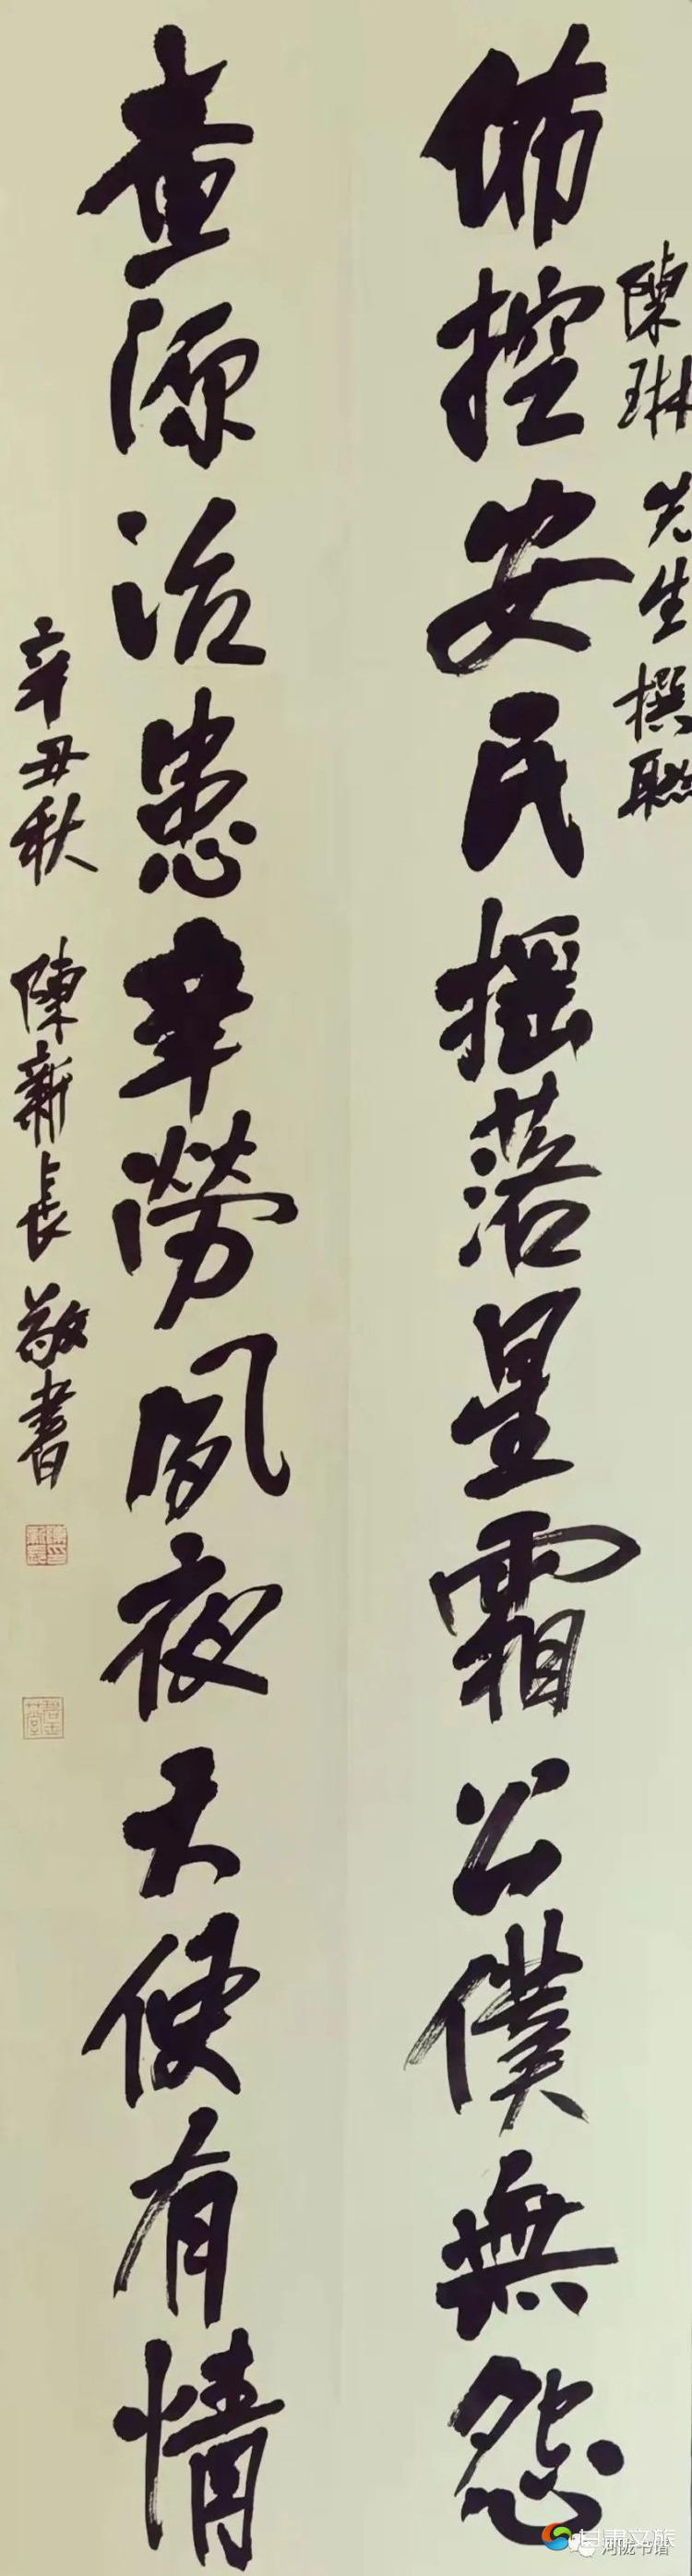 陳琳先生撰聯
佈控安民摇落星霜公僕無怨
查源治患辛勞夙夜天使有情
辛丑秋 陳新長敬書
甘肃文旅
河陇书谱